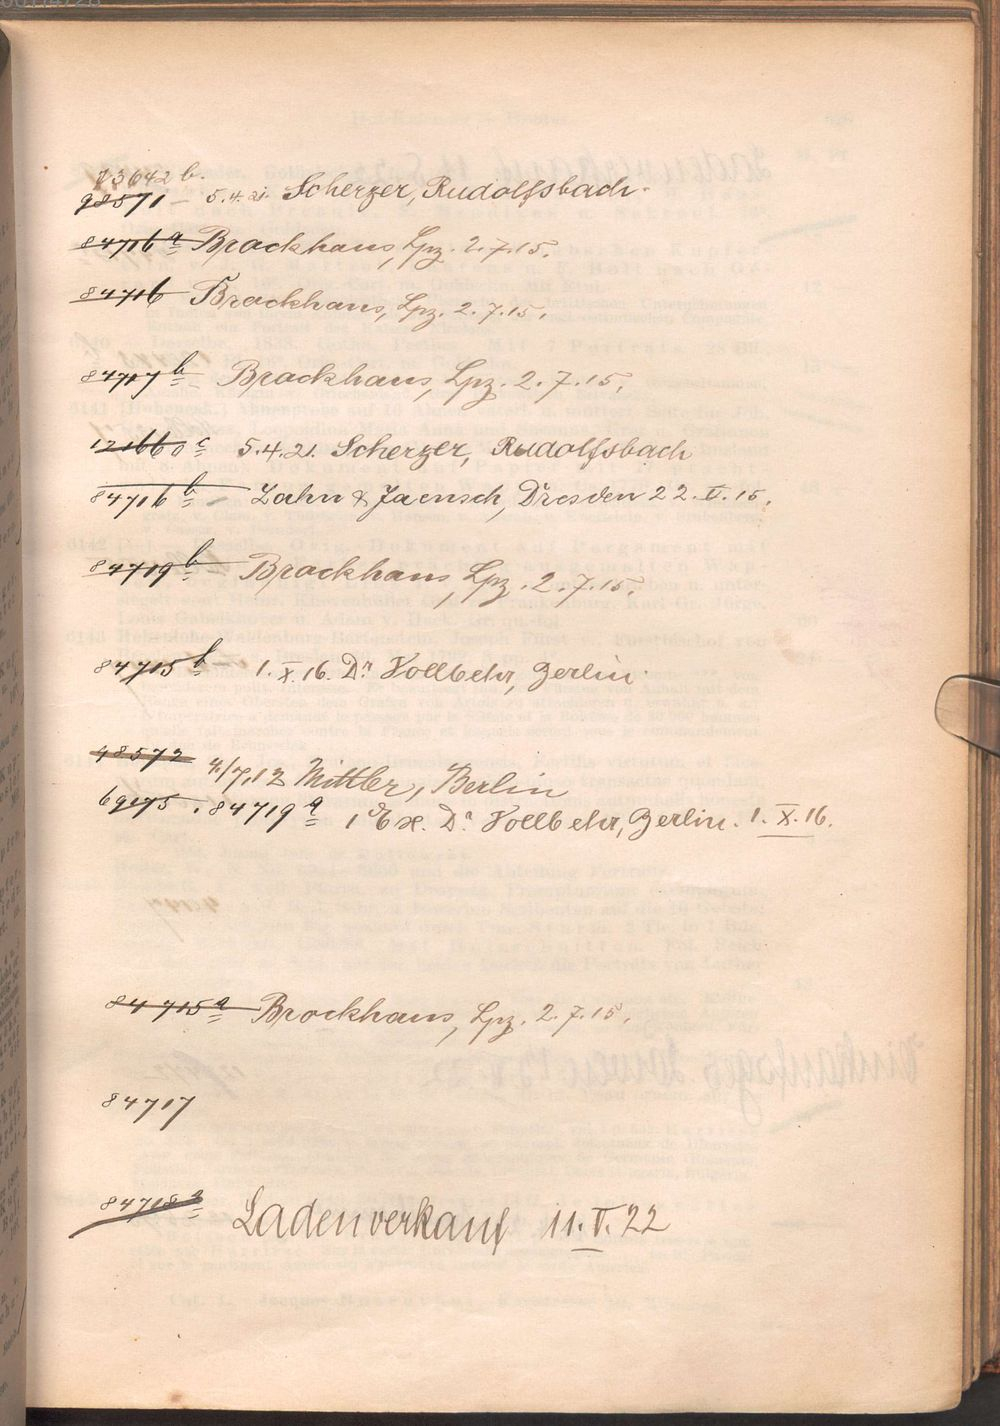 73642 b.
98571 – 5.4.21. Scherzer, Rudolfsbach.
84716 a Brockhaus, Lpz. 2.7.15.
84716 Brockhaus, Lpz. 2.7.15.
84717 b – Brockhaus, Lpz. 2.7.15.
121660 c 5.4.21. Scherzer, Rudolfsbach
84716 b – Zahn & Jaensch, Dresden 22.V.15.
84719 b Brockhaus, Lpz. 2.7.15.
84715 b 1.X.16. Dr Vollbehr, Berlin.
98572
4/7.12 Mittler, Berlin
69175 . 84719 a 1 Ex. Dr Vollbehr, Berlin. 1.X.16.
84715 a Brockhaus, Lpz. 2.7.15.
84717
84718 a Ladenverkauf 11.V.22